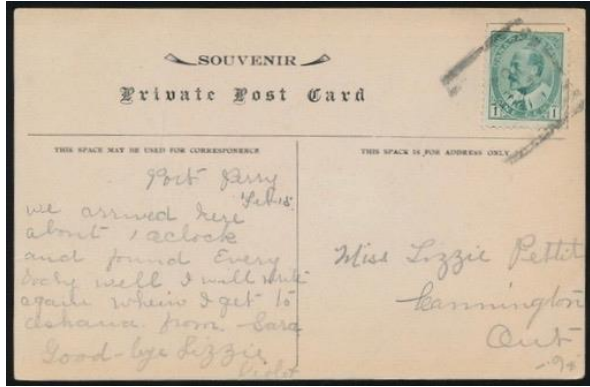 SOUVENIR
Private Post Card
THIS SPACE MAY BE USED FOR CORRESPONENCE
THIS SPACE IS FOR ADDRESS ONLY
1 1
Port Perry
Feb 18
we arrived here
about 1 aclock
and found Every
body well I will write
again when I get to
from Sara
Good-bye Lizzie
Violet
Miss Lizzie Pettit
Cannington
Ont